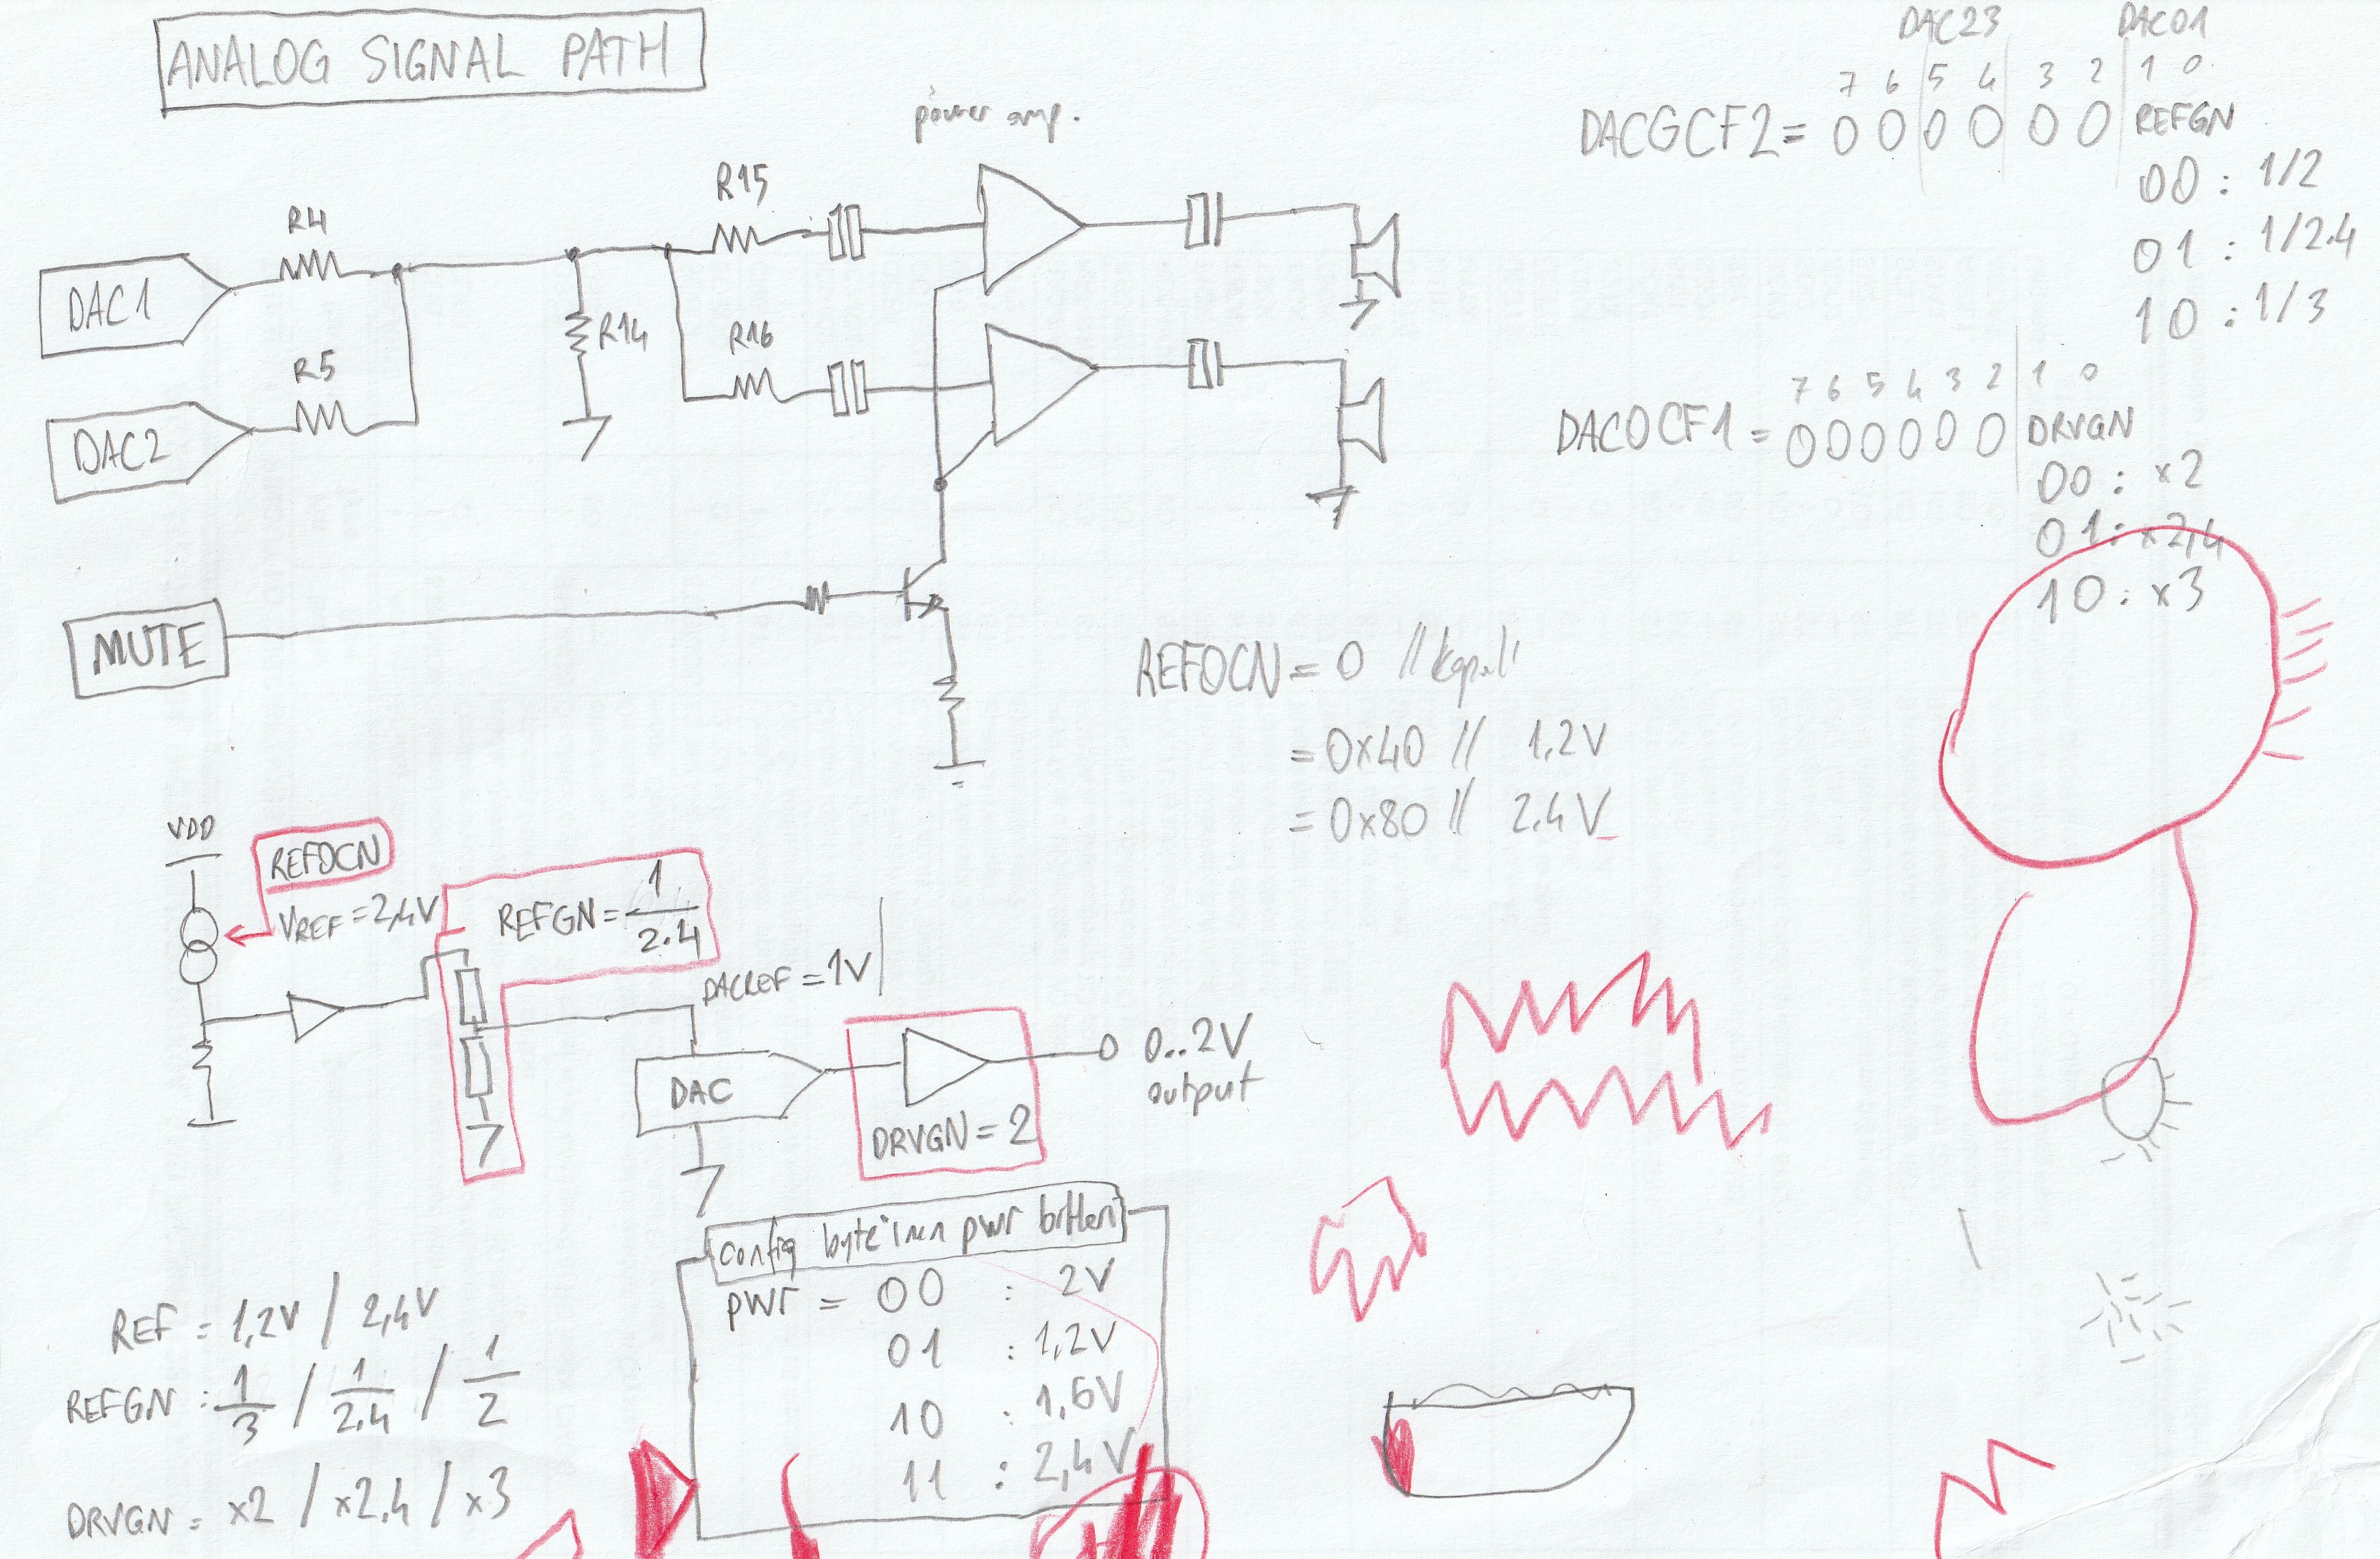 ANALOG SIGNAL PATH
DAC23 DAC01
7 6 5 4 3 2 1 0
DACGCF2 = 0 0 0 0 0 0 REFGN
00 : 1/2
01 : 1/2.4
10 : 1/3
power amp.
R15
R4
DAC1
R14
R16
R5
DAC2
7 6 5 4 3 2 1 0
DAC0CF1 = 0 0 0 0 0 0 DRVGN
00 : x2
01 : x2,4
10 : x3
MUTE
REF0CN = 0 // kapalı
= 0x40 // 1,2V
= 0x80 // 2.4V
VDD
REF0CN
VREF = 2,4V
REFGN = 1/2.4
DACREF = 1V
DAC
DRVGN = 2
0..2V
output
config byte'inin pwr bitleri
pwr = 00 : 2V
01 : 1,2V
10 : 1,6V
11 : 2,4V
REF = 1,2V / 2,4V
REFGN : 1/3 / 1/2.4 / 1/2
DRVGN = x2 / x2,4 / x3